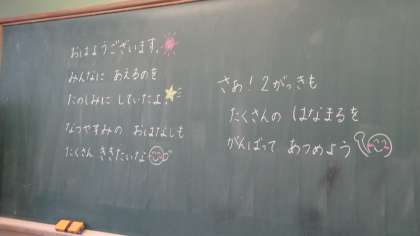 おはようございます。
みんなに あえるのを
たのしみに していたよ。
なつやすみの おはなしも
たくさん ききたいな
さぁ！2がっきも
たくさんの はなまるを
がんばって あつめよう